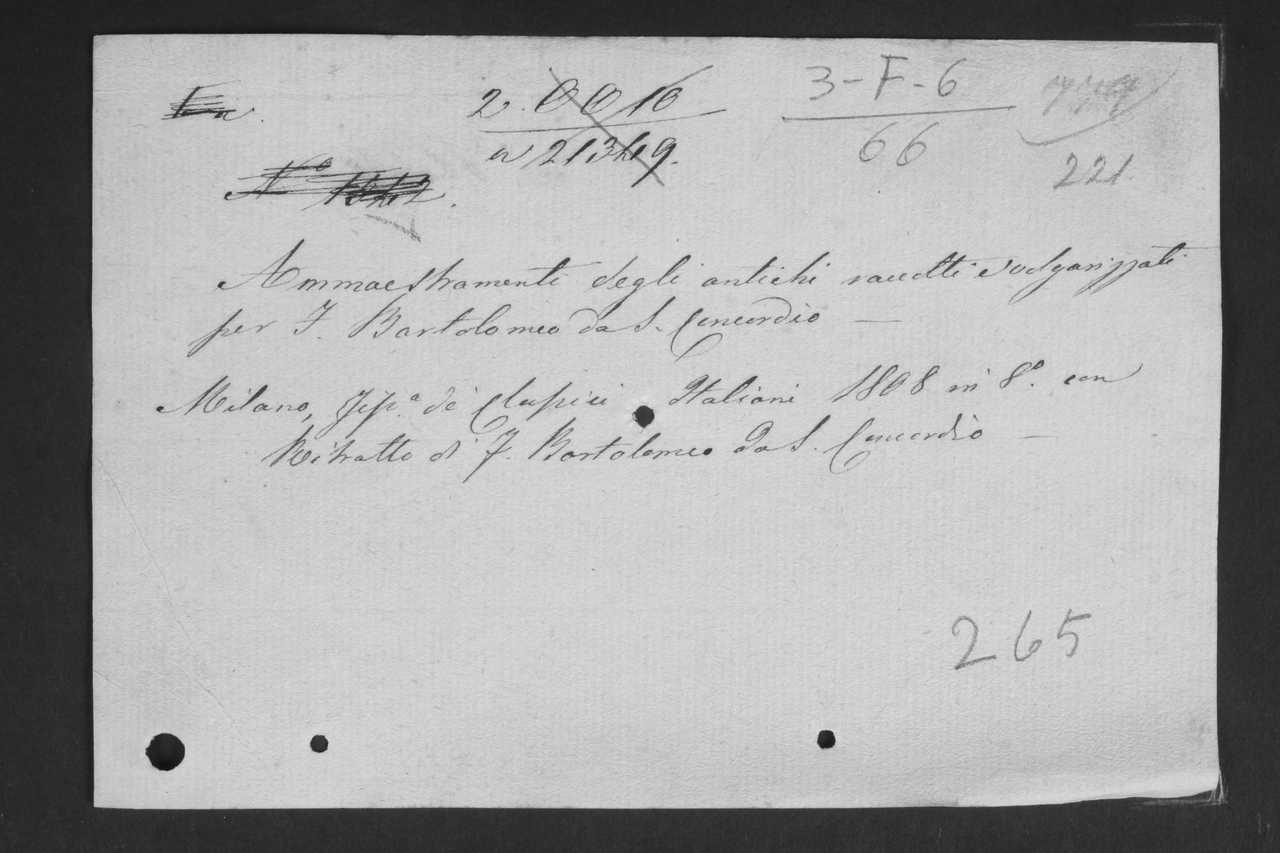 3-F-6
66
221
Ammaestramenti degli antichi raccolti e volgarizzati
per F. Bartolomeo da S. Concordio —
Milano, Tip.a de' Classici Italiani 1808 in 8.o con
Ritratto di F. Bartolomeo da S. Concordio —
265